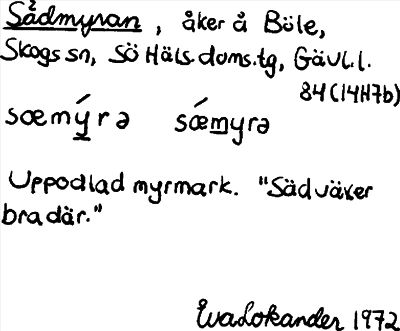 Sädmyran, åker å Böle,
Skogs sn, Sö Häls. doms. tg, Gävl. l.
84 (14H7b)
sœmýrə sœ́myrə
Uppodlad myrmark. "Säd växer
bra där."
Eva Lokander 1972